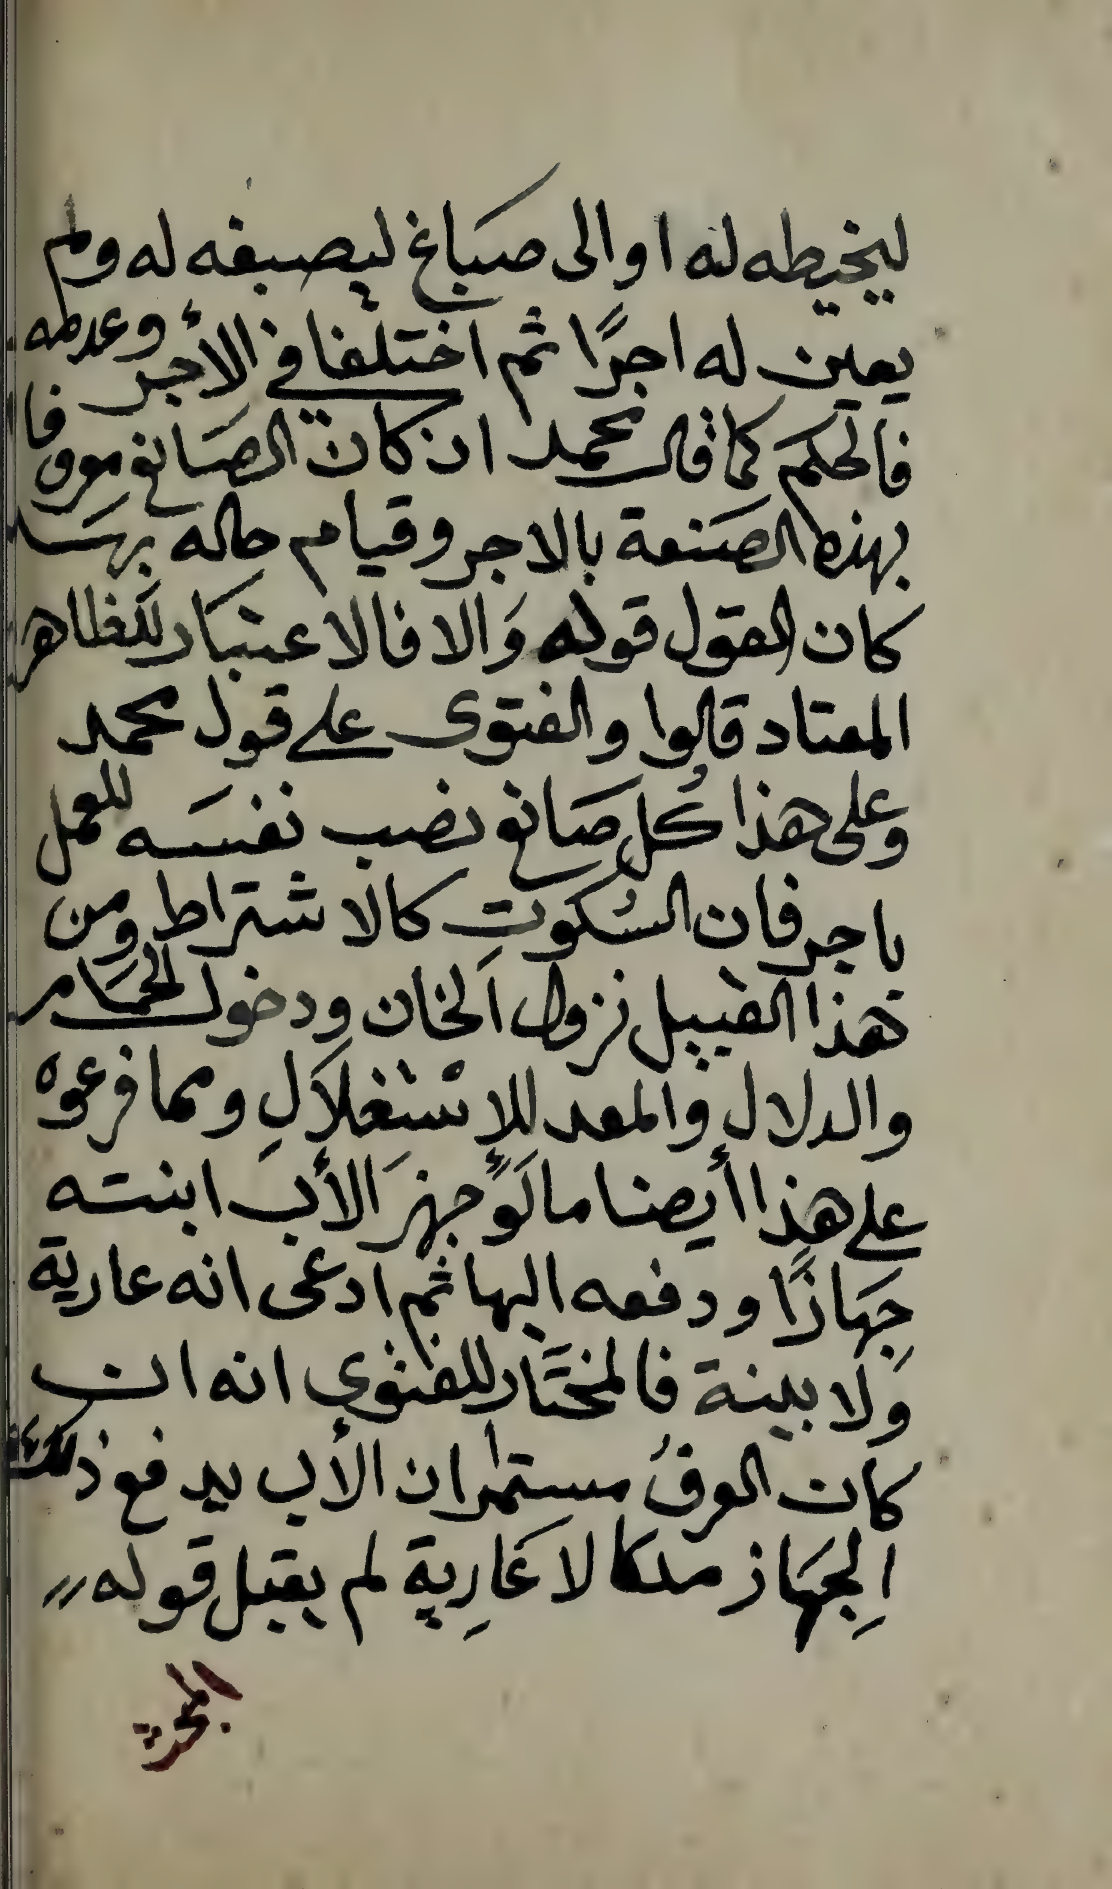 ليخيطه له او الى صباغ ليصبغه له ولم
يعين له اجرًا ثم اختلفا في الأجر وعدمه
فالحكم كما قال محمد ان كان الصانع معروفا
بهذه الصنعة بالاجر وقيام حاله بهـا
كان القول قوله وَالا فالاعتبار للظاهر
المعتاد قالوا والفتوى على قول محمد
وعلى هذا كُل صَانع نصب نفسَه للعمل
باجر فان السُكوتِ كالاشتراط ومن
هذا القبيل نزول اَلخان ودخول الحمَام
والدلال والمعد للاِسْتغلاَلِ ومما فرعوه
على هذا اأيضا ما لَوْ جهزَ الأبَ ابنته
جِهَازًا ودفعه اليها ثم ادعى انه عارية
وَلا بينة فالمختَار للفتوى انه ان
كان العرفُ مستمرا ان الأب يدفع ذلك
اِلجهَاز ملكا لا عَارِية لم يقبل قوله